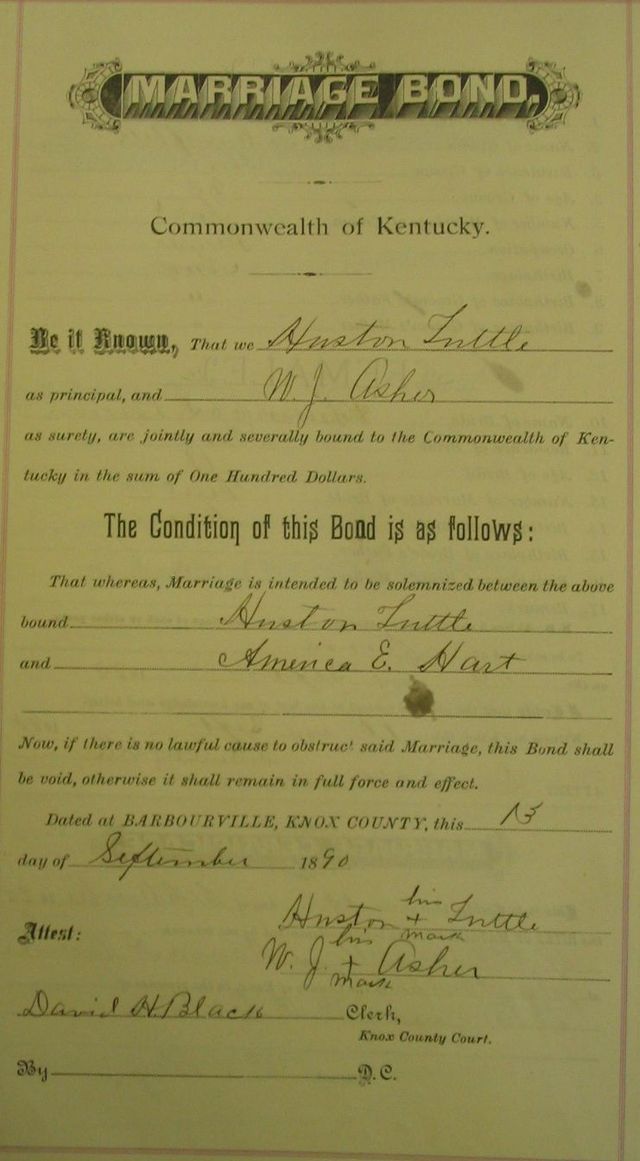 MARRIAGE BOND,
Commonwealth of Kentucky.
Be it Known, That we Huston Tuttle
as principal, and W. J. Asher
as surety, are jointly and severally bound to the Commonwealth of Ken-
tucky in the sum of One Hundred Dollars.
The Condition of this Bond is as follows:
That whereas, Marriage is intended to be solemnized between the above
bound Huston Tuttle
and America E. Hart
Now, if there is no lawful cause to obstruct said Marriage, this Bond shall
be void, otherwise it shall remain in full force and effect.
Dated at BARBOURVILLE, KNOX COUNTY, this 13
day of September 1890
his
Huston + Tuttle
mark
Attest:
his
W. J. + Asher
mark
David H. Black Clerk,
Knox County Court.
By D.C.